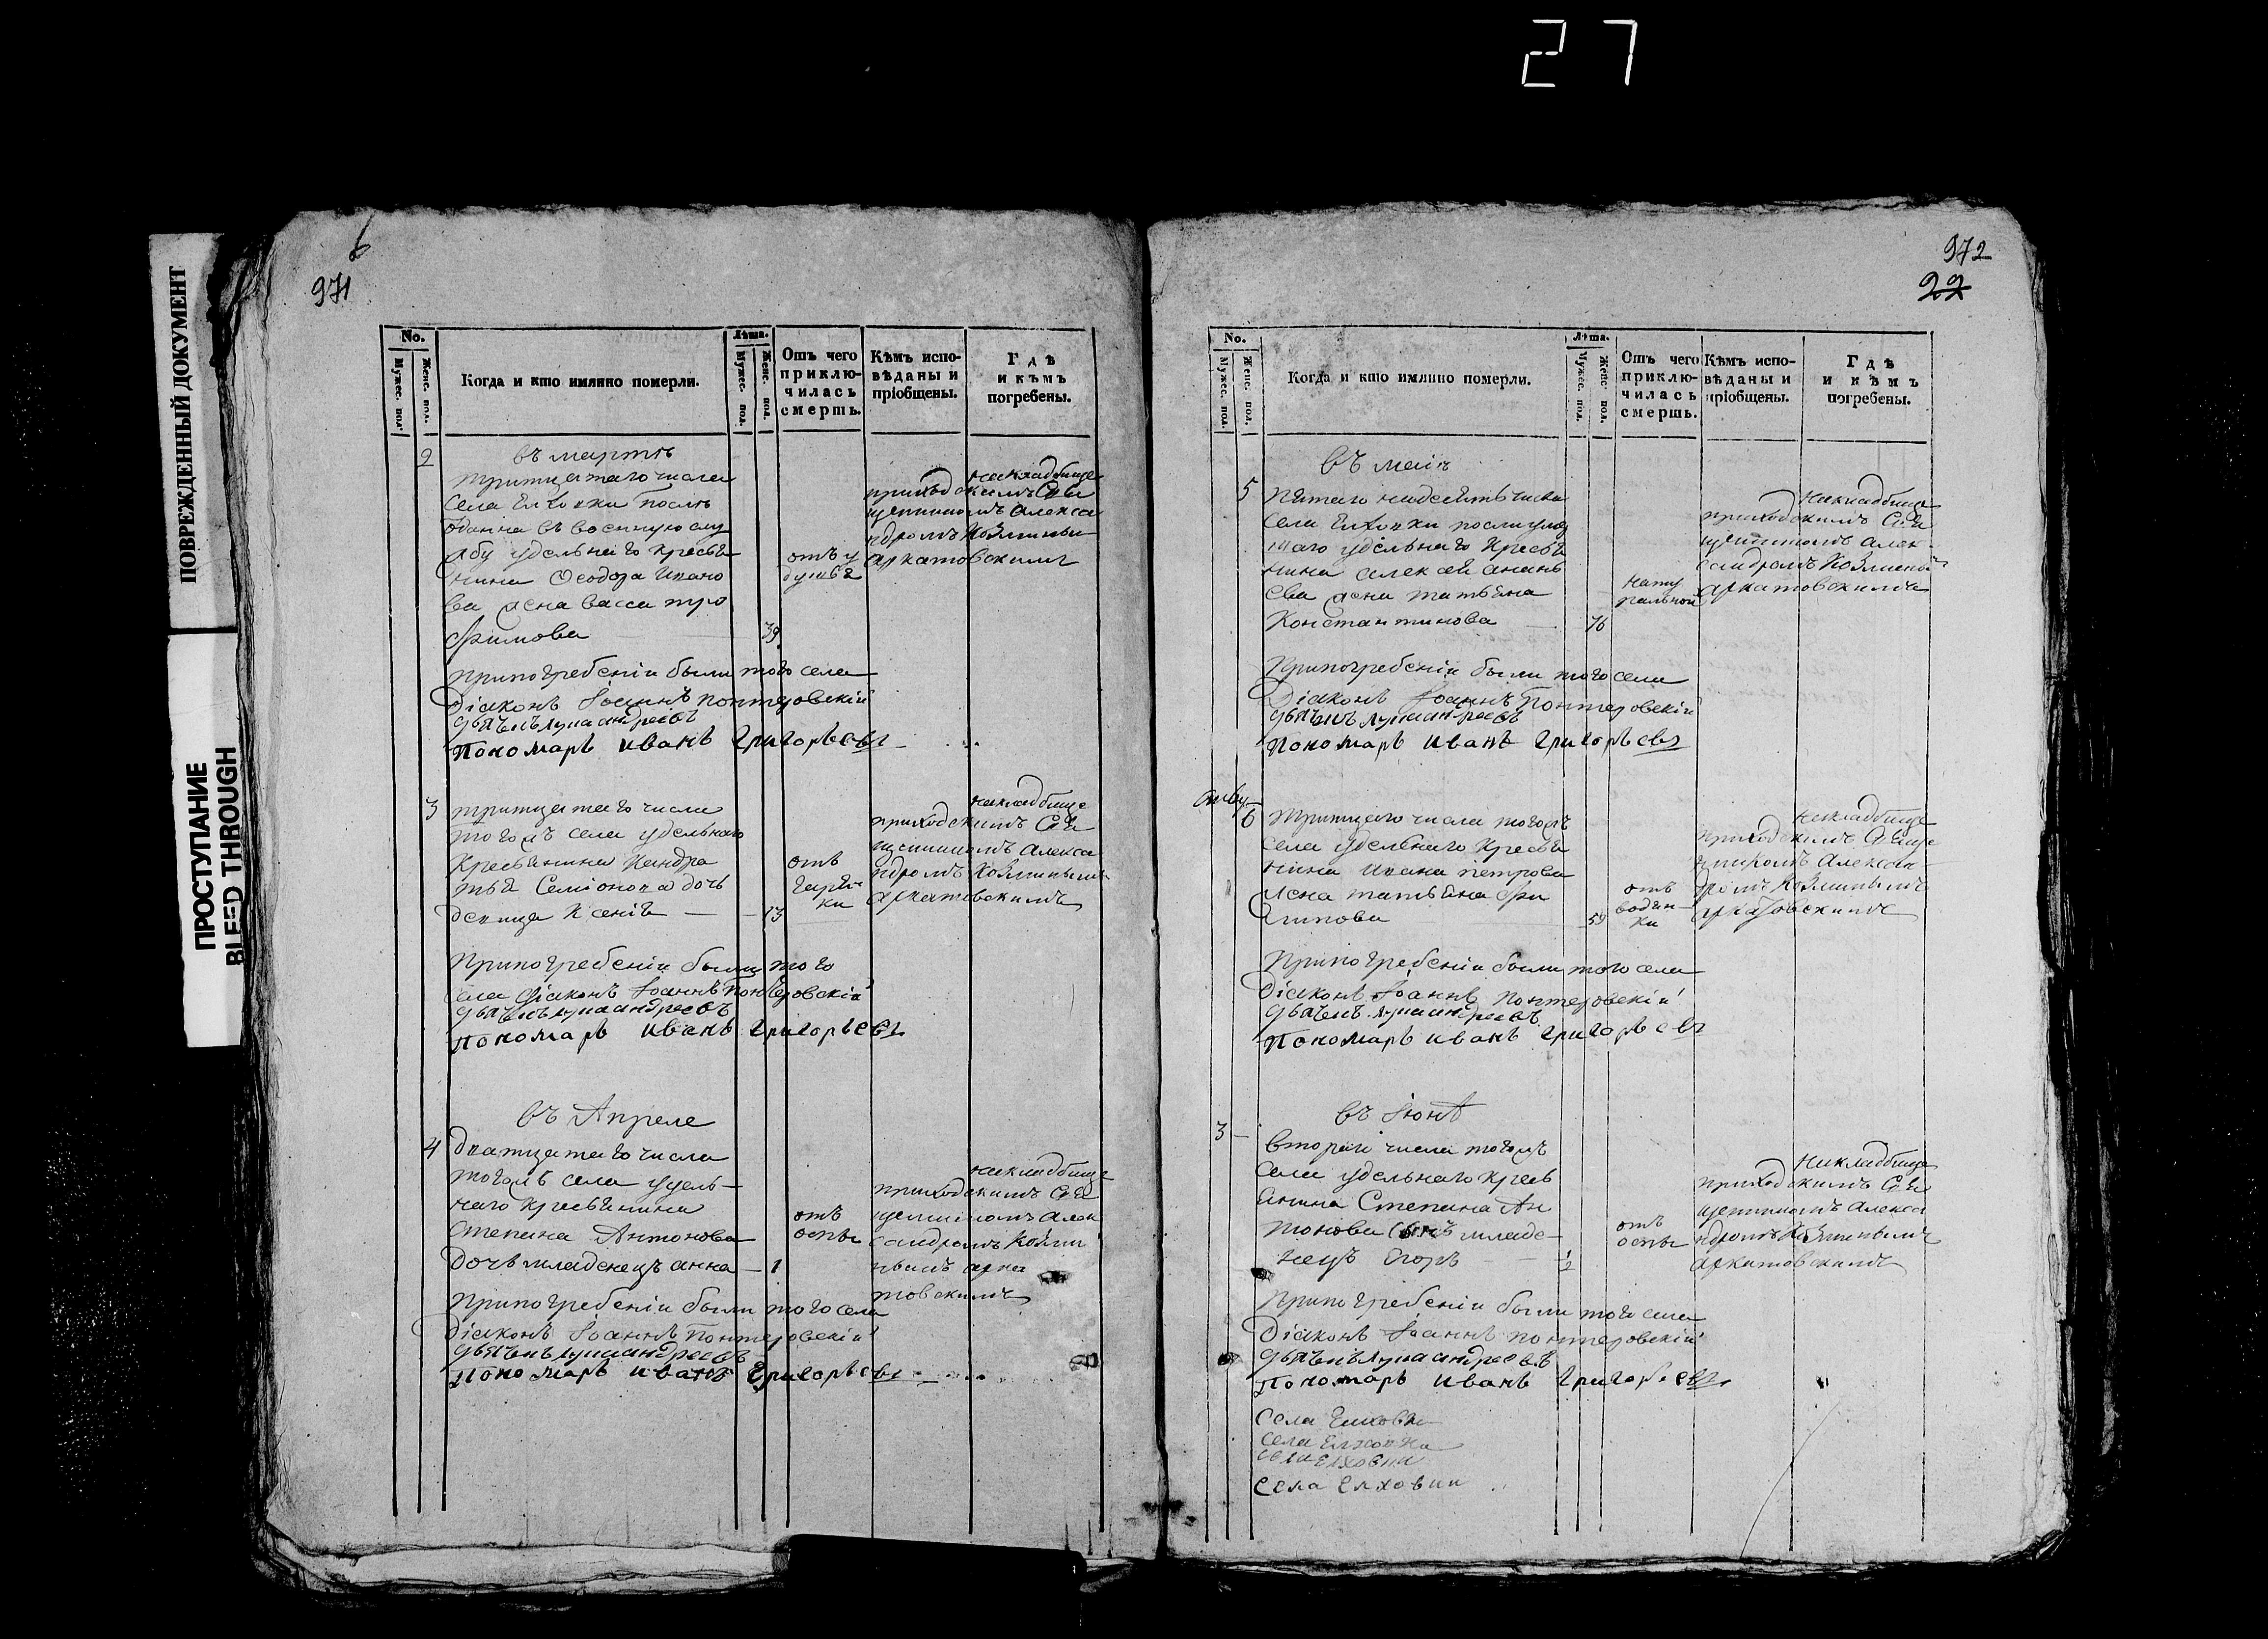 27
ПОВРЕЖДЕННЫЙ ДОКУМЕНТ
ПРОСТУПАНИЕ
BLEED THROUGH
971
No.
Мужес. пол.
Женс. пол.
Когда и кто имянно померли.
Лѣта.
Мужес. пол.
Женс. пол.
Отъ чего приклю-
чилась
смерть.
Кѣмъ испо-
вѣданы и
пріобщены.
Гдѣ
и кѣмъ
погребены.
2
въ мартѣ
тритцатаго числа
села Елховки послѣ
отданна въ военную слу
жбу удельнаго кресьтя
нина Ѳеодора Ивано
ва жена васса тро
фимова 39
приходскимъ Свя
щенникомъ Алекса
ндромъ Козминым
аркатовскимъ
накладбище
припогребеніи были того села
Діаконъ Іоаннъ понтеровскій
Пономарь иванъ григорьевъ
3
тритцатаго числа
тогожъ села удельнаго
Кресьянина Кондра
тья Семіонова дочь
девица Ксенія 13
отъ
горяч-
ки
накладбище
приходскимъ Свя
щенникомъ Алекса
ндромъ Козминымъ
аркатовскимъ
Припогребеніи были того
села Діаконъ Іоаннъ Понтеровскій
Пономарь иванъ григорьевъ
въ Апреле
4
дватцатаго числа
тогожъ села удель-
наго кресьянина
степана Антонова
дочь младенецъ анна 1
отъ
оспы
накладбище
приходскимъ Свя
щенникомъ Алек
сандромъ Козми
нымъ арка
товскимъ
Припогребеніи были того села
Діаконъ Іоаннъ Понтеровскій
Пономарь иванъ григорьевъ
972
22
No.
Мужес. пол.
Женс. пол.
Когда и кто имянно померли.
Лѣта.
Мужес. пол.
Женс. пол.
Отъ чего приклю-
чилась
смерть.
Кѣмъ испо-
вѣданы и
пріобщены.
Гдѣ
и кѣмъ
погребены.
въ маіи
5
села Елховки послѣ
удельнаго Кресьтя
нина алексей анань
ева жена татьяна
Константинова 76
нату
ральной
накладбище
приходскимъ Свя
щенникомъ Алек
сандромъ Козминой
аркатовскимъ
Припогребеніи были того села
Діаконъ Іоаннъ Понтеровскій
Пономарь иванъ григорьевъ
6
числа тогожъ
села удельнаго кресьтя
нина Ивана петрова
жена татьяна фи
липова 59
отъ
водян-
ки
накладбище
приходскимъ Свяще
нникомъ Алексан
дромъ Козминымъ
аркатовскимъ
Припогребеніи были того села
Діаконъ Іоаннъ понтеровскій
Пономарь иванъ григорьевъ
въ Іюнѣ
3
втораго числа тогожъ
села удельнаго кресь
янина Степана Ан
тонова сынъ младе-
нецъ Егоръ ½
отъ
оспы
накладбище
приходскимъ Свя
щенникомъ Алекса
ндромъ Козминымъ
аркатовскимъ
Припогребеніи были того села
Діаконъ Іоаннъ понтеровскій
Пономарь иванъ григорьевъ
села Елховки
села Елховки
села елховки
села елховки